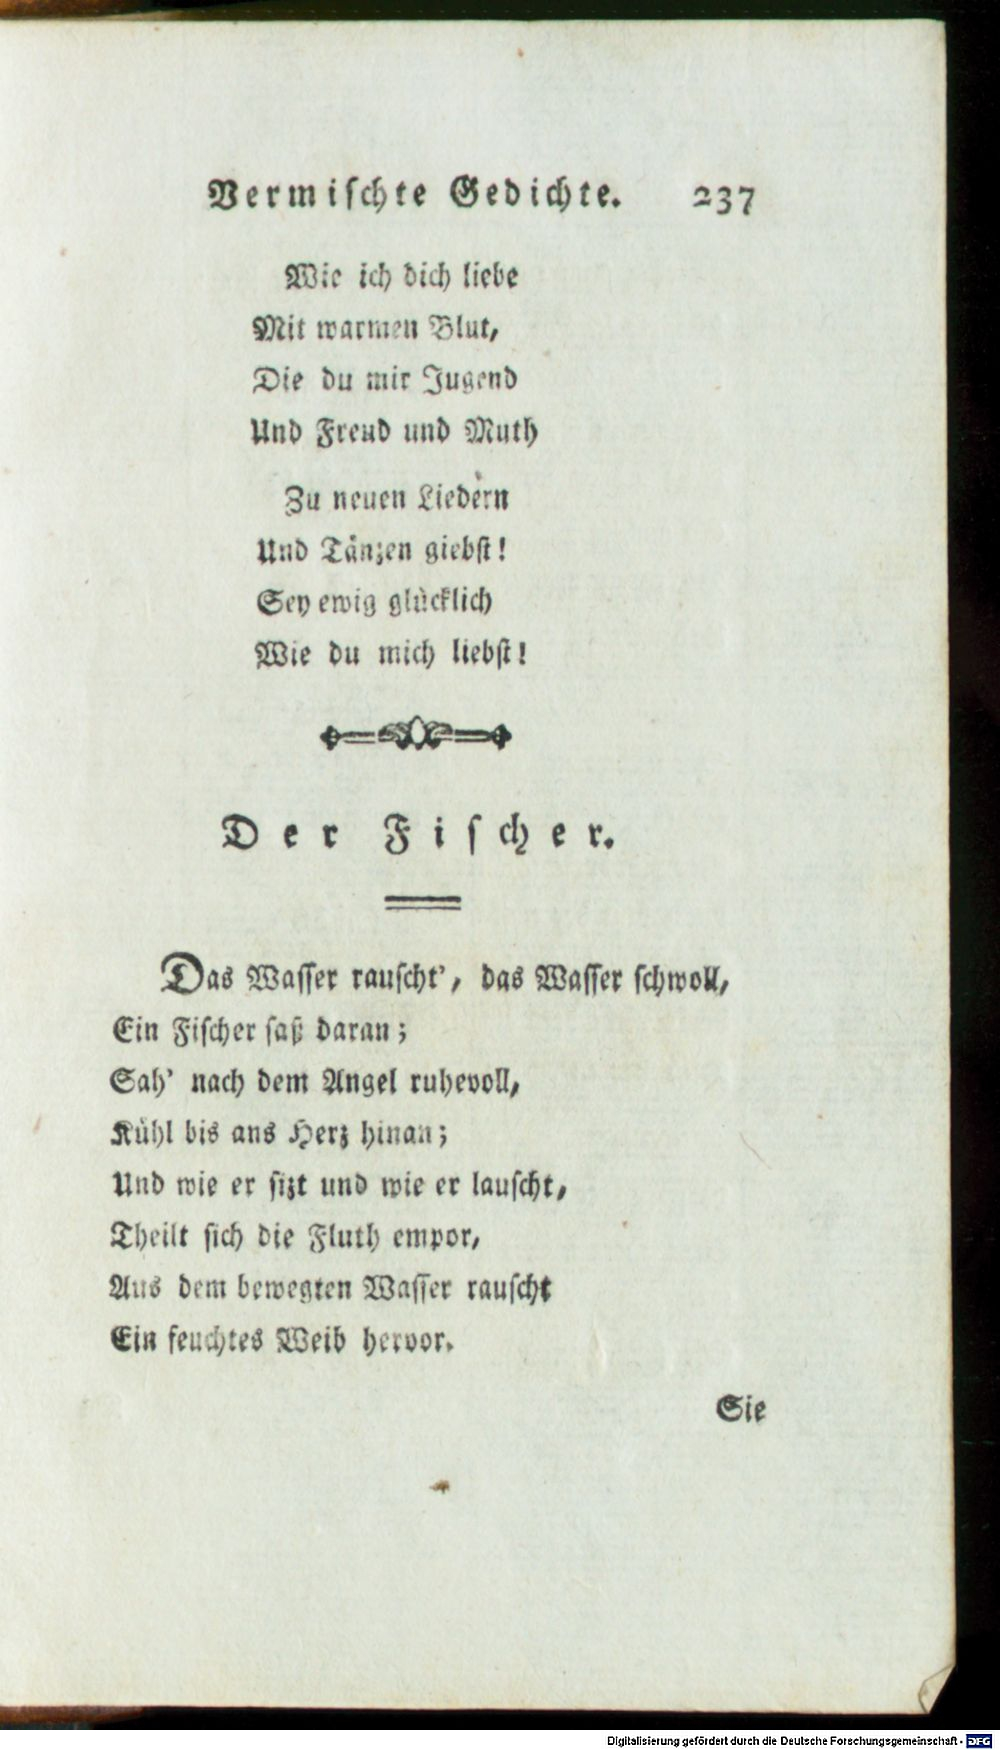 Vermiſchte Gedichte. 237
Wie ich dich liebe
Mit warmen Blut,
Die du mir Jugend
Und Freud und Muth
Zu neuen Liedern
Und Tänzen giebſt!
Sey ewig glücklich
Wie du mich liebſt!
Der Fiſcher.
Das Waſſer rauſcht', das Waſſer ſchwoll,
Ein Fiſcher ſaß daran;
Sah' nach dem Angel ruhevoll,
Kühl bis ans Herz hinan;
Und wie er ſizt und wie er lauſcht,
Theilt ſich die Fluth empor,
Aus dem bewegten Waſſer rauſcht
Ein feuchtes Weib hervor.
Sie
Digitalisierung gefördert durch die Deutsche Forschungsgemeinschaft - DFG